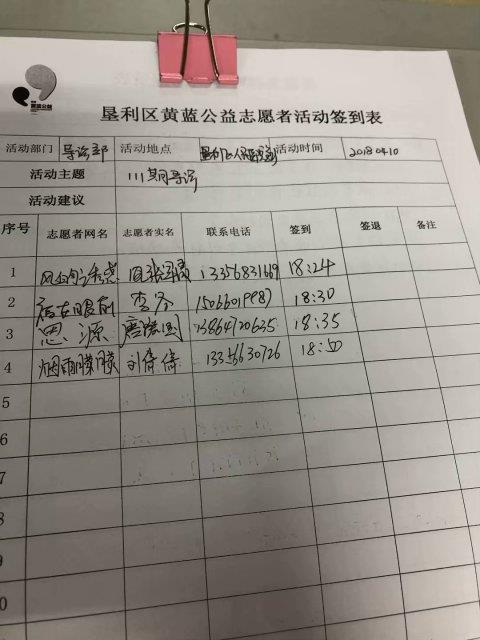 黄蓝公益
垦利区黄蓝公益志愿者活动签到表
活动部门 导诊部 活动地点 垦利区人民医院 活动时间 20180410
活动主题 111期导诊
活动建议
序号 志愿者网名 志愿者实名 联系电话 签到 签退 备注
1 13356831669 18:24
2 活在眼前 李芬 15066019987 18:30
3 恩源 13864720635 18:35
4 烟雨朦朦 刘倩倩 13356630726 18:50
5
6
7
8
9
0